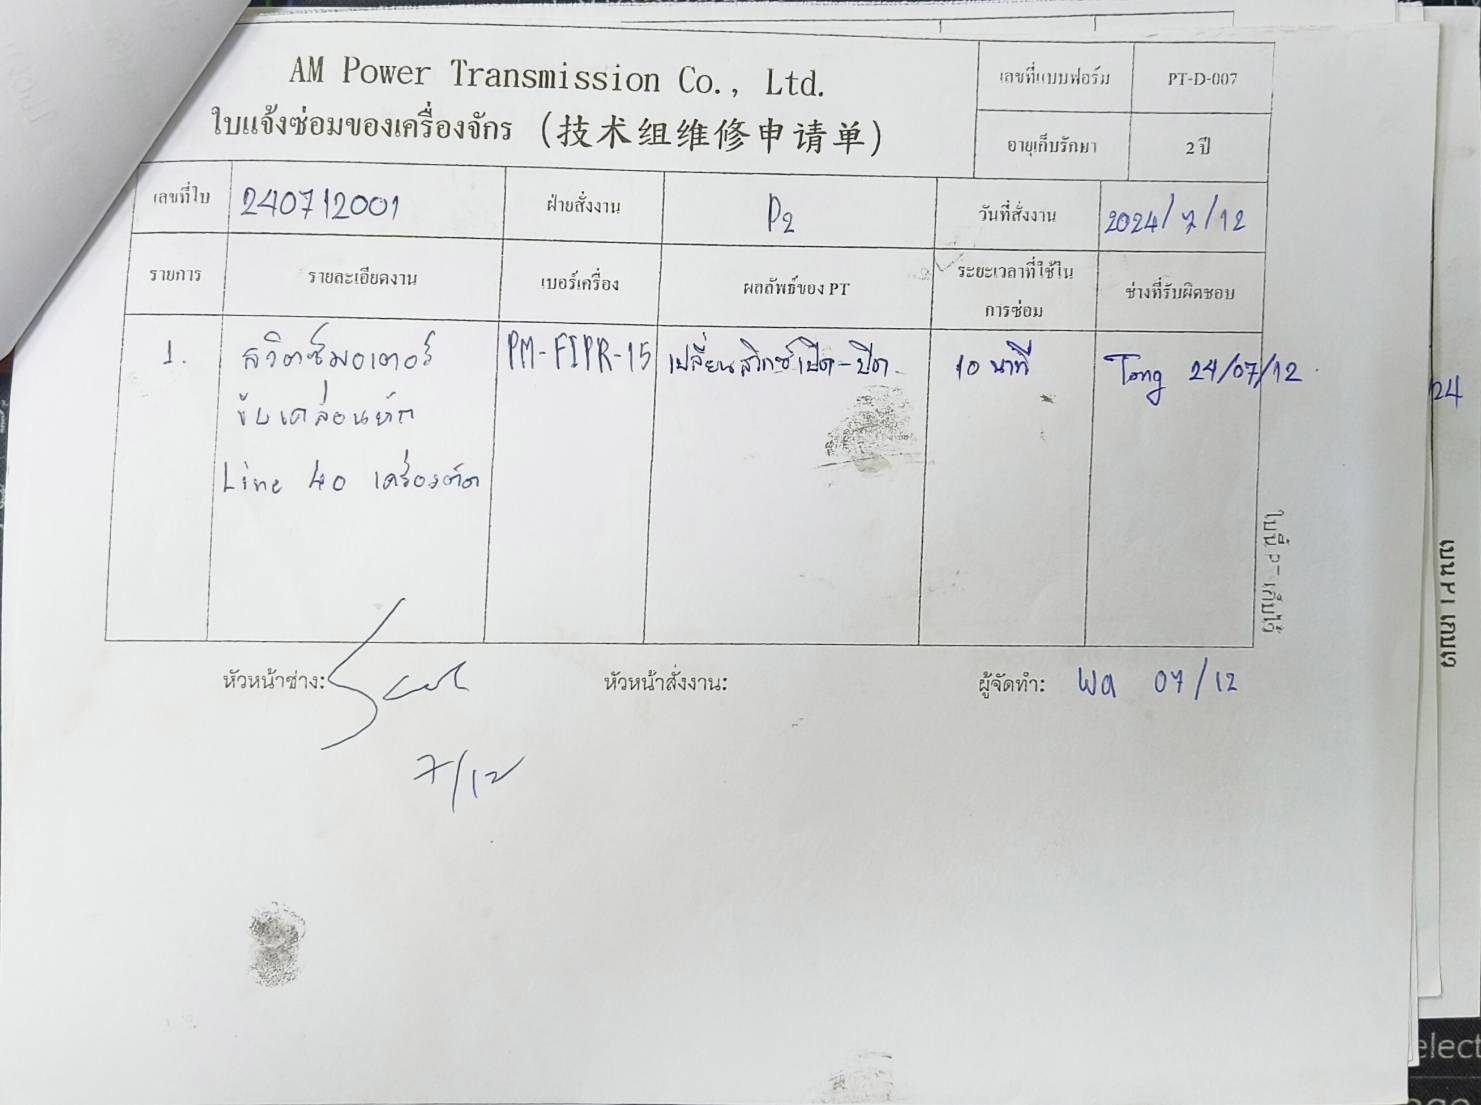 AM Power Transmission Co., Ltd.
ใบแจ้งซ่อมของเครื่องจักร (技术组维修申请单)
เลขที่แบบฟอร์ม PT-D-007
อายุเก็บรักษา 2 ปี
เลขที่ใบ 240712001 ฝ่ายสั่งงาน P2 วันที่สั่งงาน 2024/7/12
รายการ รายละเอียดงาน เบอร์เครื่อง ผลลัพธ์ของ PT ระยะเวลาที่ใช้ในการซ่อม ช่างที่รับผิดชอบ
1. สวิตซ์มอเตอร์ PM-FIPR-15 เปลี่ยนสวิทซ์เปิด-ปิด 10 นาที Tong 24/07/12
ขับเคล่อน
Line 40 เครื่องตัด
ใบนี้ PT เก็บไว้
หัวหน้าช่าง: หัวหน้าสั่งงาน: ผู้จัดทำ: Wa 07/12
7/12
24
elect